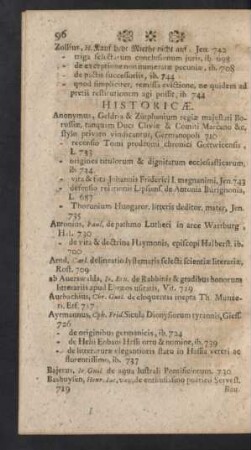 96
Zollius, de Kauff hebt Miethe nicht auf. Jen. 742
- triga selectarum conclusionum juris, ib. 708
- de exceptione non numeratæ pecuniæ, ib. 708
- de pactis successoriis, ib. 744
- quod simpliciter, remissa evictione, ne quidem ad
pretii restitutionem agi possit, ib. 744
HISTORICÆ.
Anonymus, Geldriæ & Zutphaniæ regiæ majestati Bo-
russiæ, tanquam Duci Cliviæ & Comiti Marcano &c.
stylo privato vindicatur, Germanopoli 710
- recensio Tomi prodromi chronici Gotwicensis,
L. 733
- origines titulorum & dignitatum ecclesiasticorum,
ib. 724
- vita & fata Johannis Friderici I. magnanimi, Jen. 743
- defensio reliquiæ Lipsiensis de Annatis
L. 687
- Thoranium Hungaror. literis deditor. mater, Jen.
735
Antonius, Paul. de pathmo Lutheri in arce Wartburg.
Hal. 730
- de vita & doctrina Haymonis, episcopi Halberst. ib.
700
Arnd, Carl. de systematis selecti scientiæ literariæ,
Rost. 709
ab Auerswalda, Jo. de Rabbinis & gradibus honorum
literariis apud Ebræos usitatis, Vit. 719
Aurbachius, Chr. Guil. de eloquentia inepta Th. Munce-
ri, Erf. 717
Ayrmannus, Cph. Frid. Sicula Dionysiorum tyrannis, Giess.
726
- de originibus germanicis, ib. 724
- de Helii Eobani Hessi ortu & nomine, ib. 739
- de literaturæ elegantioris statu in Hassia veteri ac
florentissimo, ib. 737
Bajerus, Jo Guil. de aqua lustrali Pontificiorum. 730
Bashuysen, Henr. Jac. van, de
719
Bau-